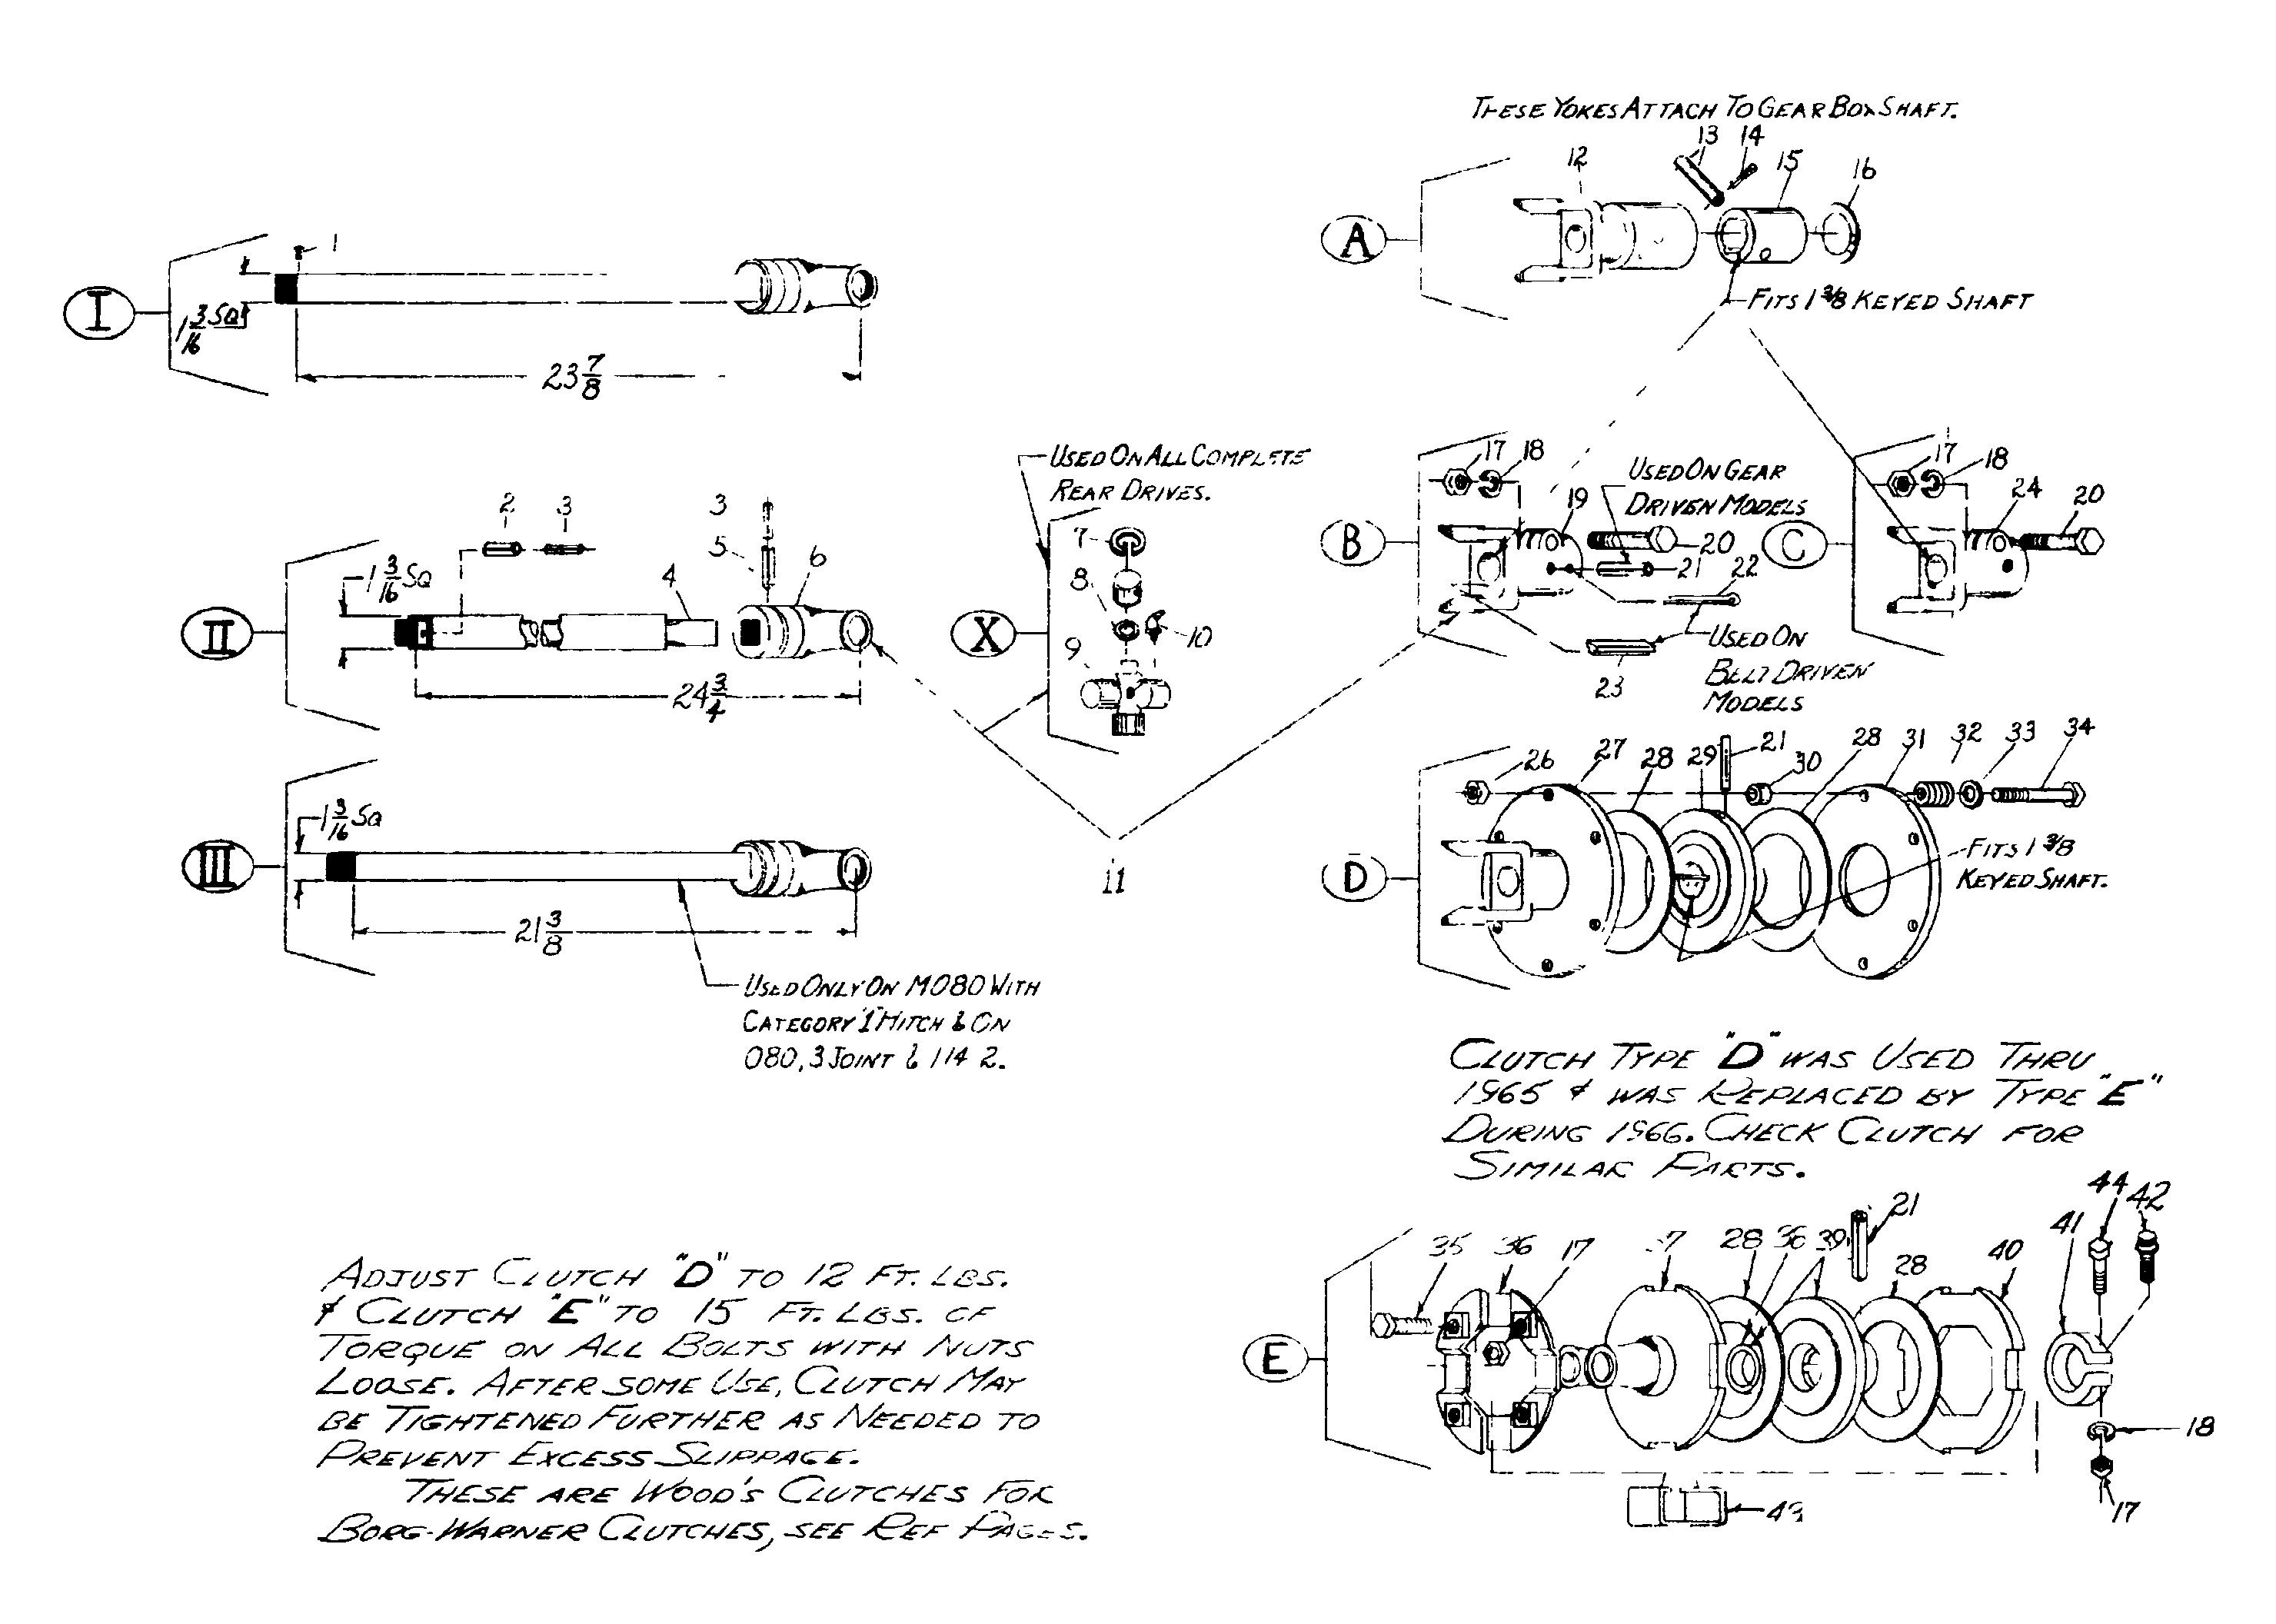 THESE YOKES ATTACH TO GEAR BOX SHAFT.
12 13 14 15 16
A
FITS 1 3/8 KEYED SHAFT
I
1
1 3/16 SQ
23 7/8
II
2 3 3
5 6
4
1 3/16 SQ
24 3/4
USED ON ALL COMPLETE
REAR DRIVES.
X
7
8
10
9
B
17 18
19
USED ON GEAR
DRIVEN MODELS
20
21
22
USED ON
BELT DRIVEN
MODELS
23
C
17 18
24
20
III
1 3/16 SQ
21 3/8
USED ONLY ON M080 WITH
CATEGORY "I" HITCH & ON
080, 3 JOINT & 114 2.
11
D
26 27 28 29 21 30 28 31 32 33 34
FITS 1 3/8
KEYED SHAFT.
CLUTCH TYPE "D" WAS USED THRU
1965 & WAS REPLACED BY TYPE "E"
DURING 1966. CHECK CLUTCH FOR
SIMILAR PARTS.
ADJUST CLUTCH "D" TO 12 FT. LBS.
& CLUTCH "E" TO 15 FT. LBS. OF
TORQUE ON ALL BOLTS WITH NUTS
LOOSE. AFTER SOME USE, CLUTCH MAY
BE TIGHTENED FURTHER AS NEEDED TO
PREVENT EXCESS SLIPPAGE.
THESE ARE WOOD'S CLUTCHES FOR
BORG-WARNER CLUTCHES, SEE REF PAGES.
E
35 36 17 28 39 21 28 40 41 44 42
18
17